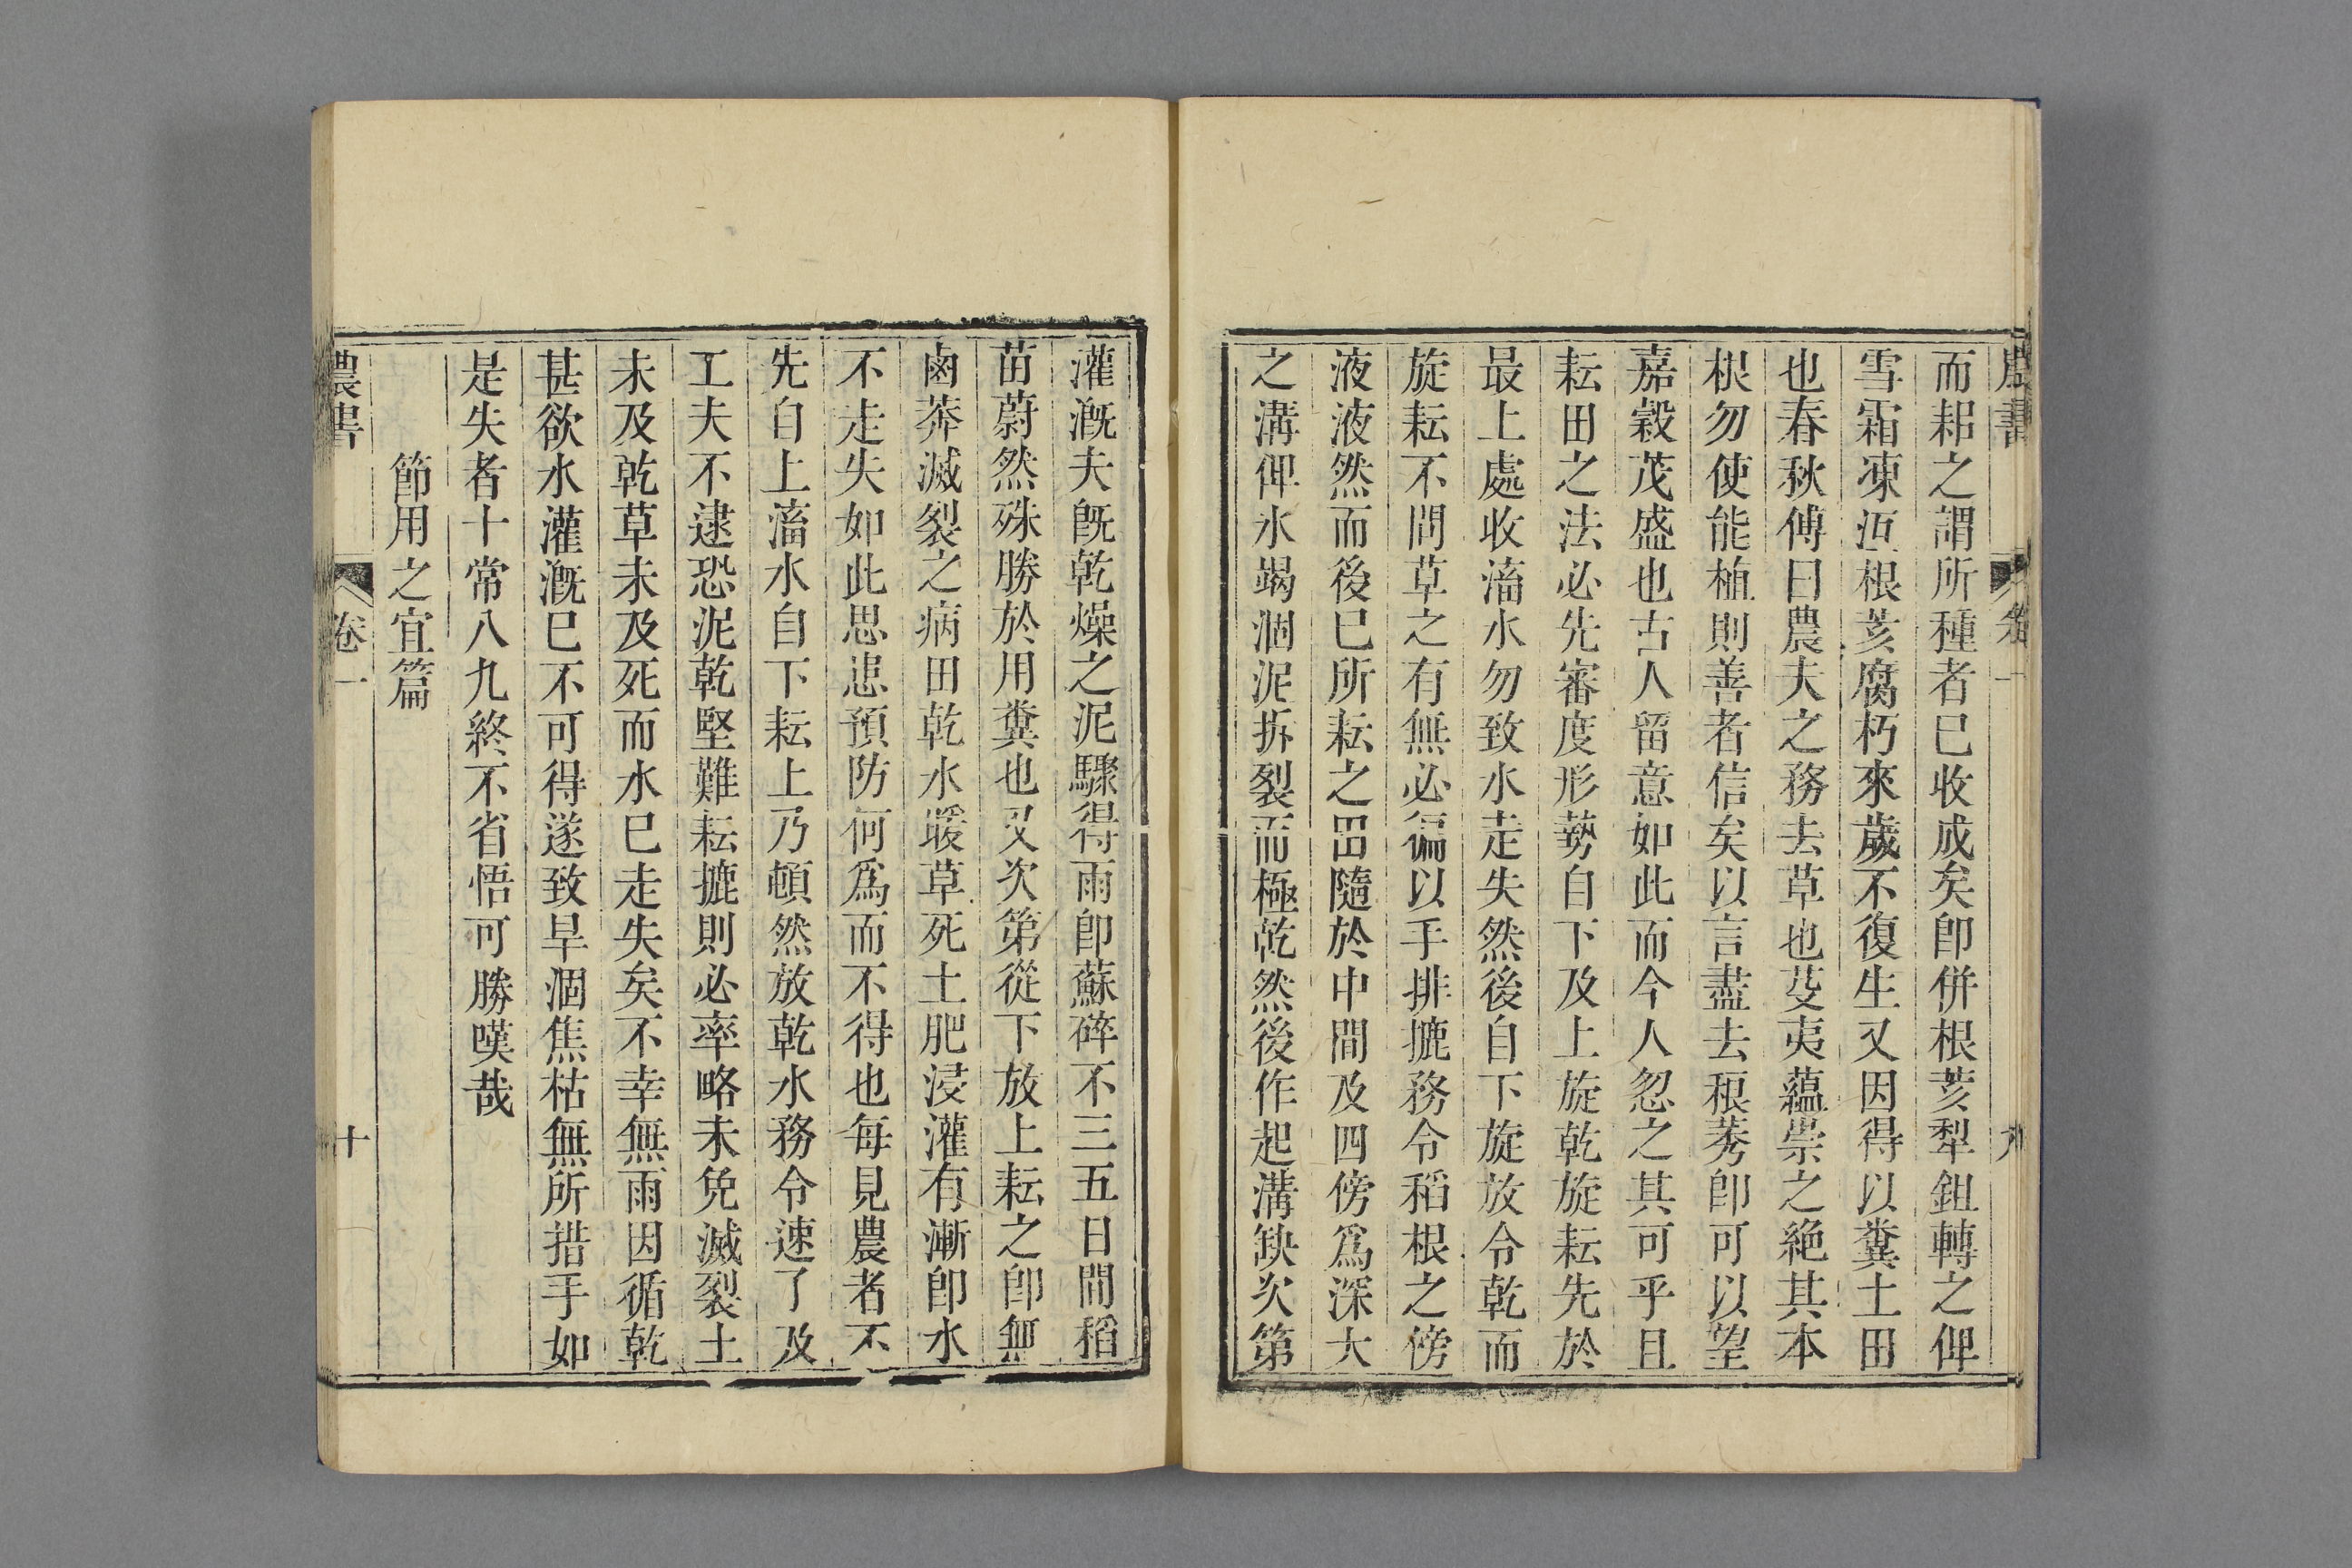 農書
卷一
九
而耕之謂所種者已收成矣即併根荄犁鉏轉之俾
雪霜凍沍根荄腐朽來歲不復生又因得以糞土田
也春秋傅曰農夫之務去草也芟夷蘊崇之絶其本
根勿使能植則善者信矣以言盡去稂莠即可以望
嘉穀茂盛也古人留意如此而今人忽之其可乎且
耘田之法必先審度形勢自下及上旋乾旋耘先於
最上處收滀水勿致水走失然後自下旋放令乾而
旋耘不問草之有無必徧以手排摝務令稻根之傍
液液然而後已所耘之田隨於中間及四傍爲深大
之溝俾水竭涸泥拆裂而極乾然後作起溝缺次第
灌溉夫旣乾燥之泥驟得雨即蘇碎不三五日間稻
苗蔚然殊勝於用糞也又次第從下放上耘之即無
鹵莽滅裂之病田乾水暖草死土肥浸灌有漸即水
不走失如此思患預防何爲而不得也每見農者不
先自上滀水自下耘上乃頓然放乾水務令速了及
工夫不逮恐泥乾堅難耘摝則必率略未免滅裂土
未及乾草未及死而水已走失矣不幸無雨因循乾
甚欲水灌溉已不可得遂致旱涸焦枯無所措手如
是失者十常八九終不省悟可勝嘆哉
節用之宜篇
農書
卷一
十